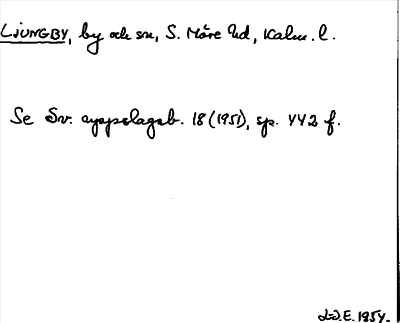 LJUNGBY, by och sn, S. Möre hd, Kalm. l.
Se Sv. uppslagsb. 18 (1951), sp. 442 f.
L-J.E. 1954.